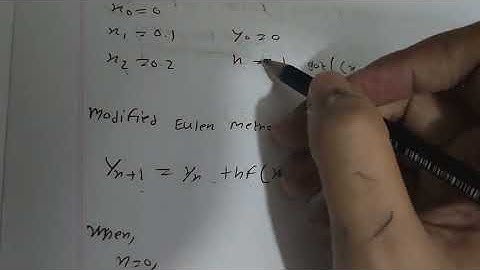 x₀=0
x₁ = 0.1 y₀=0
x₂ =0.2 h =
Modified Euler metho
yₙ₊₁ = yₙ +hf(x
When,
n=0,